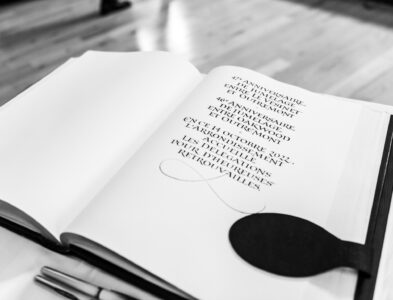 47e ANNIVERSAIRE
DE JUMELAGE
ENTRE LE VÉSINET
ET OUTREMONT
46e ANNIVERSAIRE
DE JUMELAGE
ENTRE OAKWOOD
ET OUTREMONT
EN CE 14 OCTOBRE 2022,
L'ARRONDISSEMENT
ACCUEILLE
LES DÉLÉGATIONS
POUR D'HEUREUSES
RETROUVAILLES.